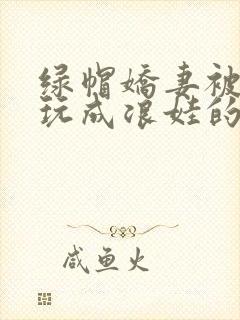 绿帽娇妻被
玩成浪娃的
咸鱼火